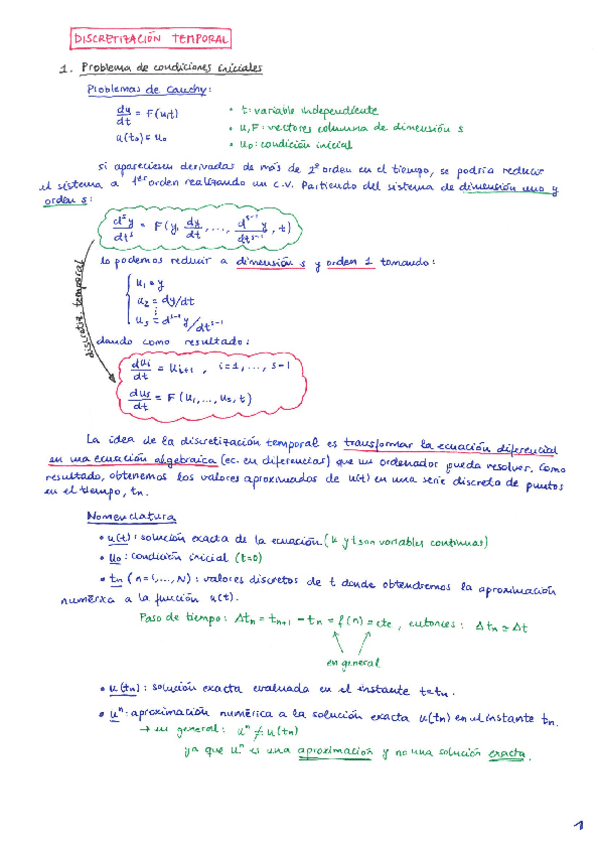 DISCRETIZACIÓN TEMPORAL
1. Problema de condiciones iniciales
Problemas de Cauchy:
du/dt = F(u,t) • t: variable independiente
• u, F: vectores columna de dimensión s
u(t₀) = u₀ • u₀: condición inicial
Si apareciesen derivadas de más de 2º orden en el tiempo, se podría reducir
el sistema a 1er orden realizando un c.v. Partiendo del sistema de dimensión uno y
orden s:
dˢy/dtˢ = F(y, dy/dt, ..., dˢ⁻¹y/dtˢ⁻¹, t)
lo podemos reducir a dimensión s y orden 1 tomando:
discretiz. temporal
u₁ = y
u₂ = dy/dt
⋮
uₛ = dˢ⁻¹y/dtˢ⁻¹
dando como resultado:
duᵢ/dt = uᵢ₊₁ , i=1, ..., s-1
duₛ/dt = F(u₁, ..., uₛ, t)
La idea de la discretización temporal es transformar la ecuación diferencial
en una ecuación algebraica (ec. en diferencias) que un ordenador pueda resolver. Como
resultado, obtenemos los valores aproximados de u(t) en una serie discreta de puntos
en el tiempo, tn.
Nomenclatura
• u(t): solución exacta de la ecuación (u y t son variables continuas)
• u₀: condición inicial (t=0)
• tn (n=1, ..., N): valores discretos de t donde obtendremos la aproximación
numérica a la función u(t).
Paso de tiempo: Δtn = tn+1 - tn = f(n) = cte, entonces: Δtn = Δt
en general
• u(tn): solución exacta evaluada en el instante t=tn.
• uⁿ: aproximación numérica a la solución exacta u(tn) en el instante tn.
→ en general: uⁿ ≠ u(tn)
ya que uⁿ es una aproximación y no una solución exacta.
1